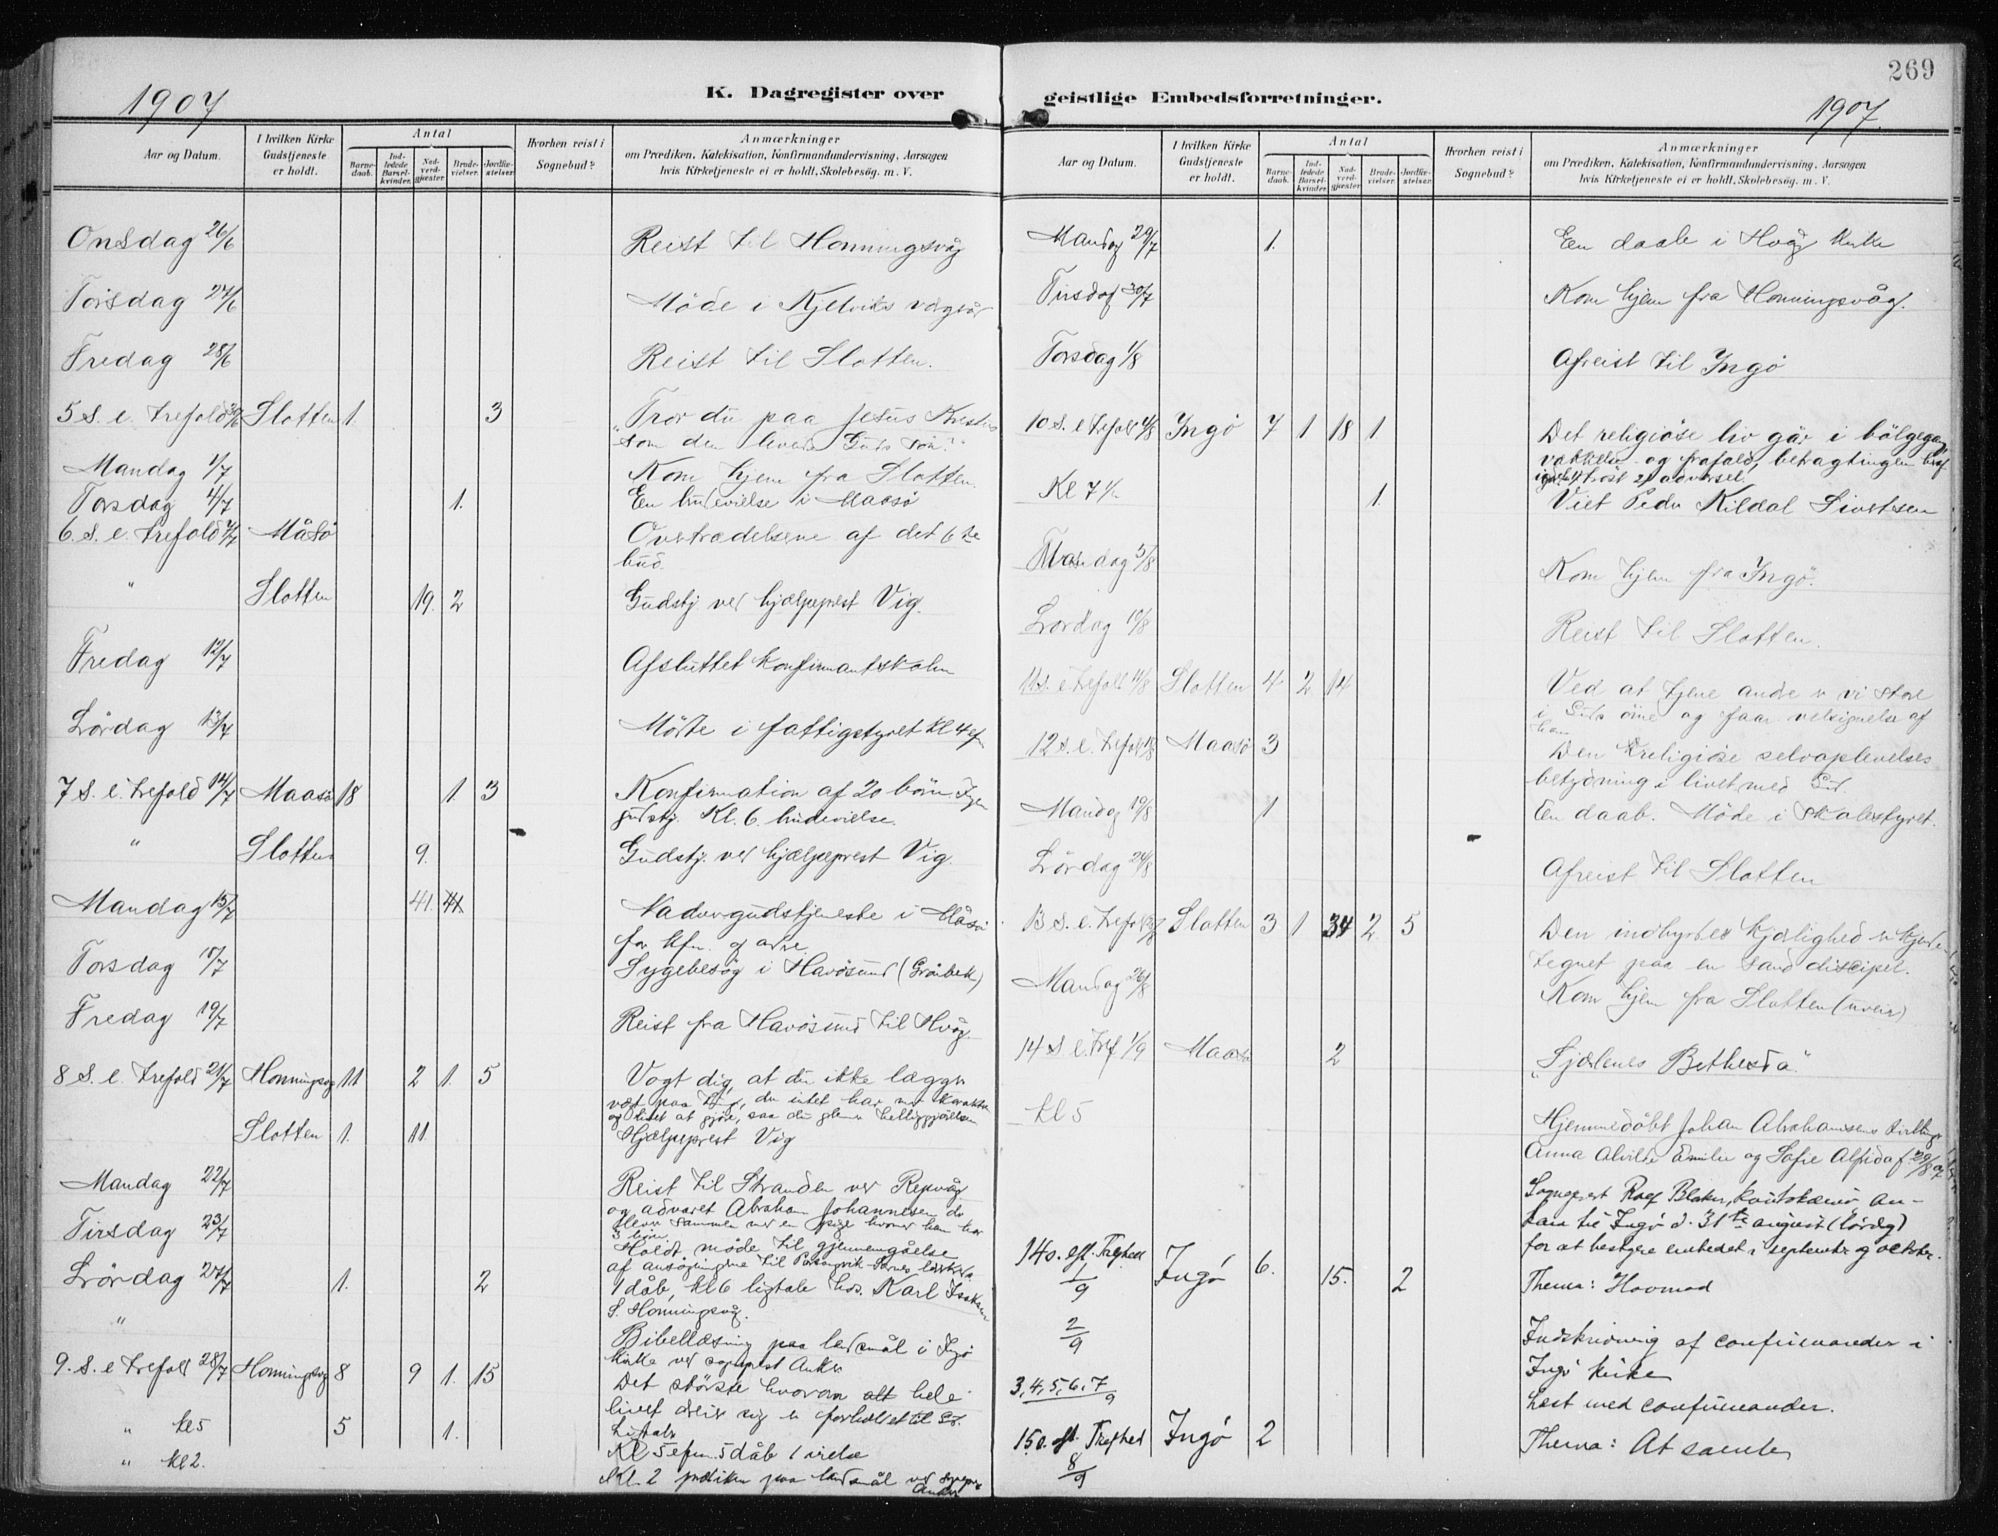 269
1907
K. Dagregister over
Aar og Datum.
I hvilken Kirke Gudstjeneste er holdt.
Antal
Barnedaab.
Indledede Barselkvinder.
Nadverdgjæster
Brudevielser.
Jordfæstelser.
Hvorhen reist i Sognebud?
Anmærkninger
om Prædiken, Katekisation, Konfirmandundervisning, Aarsagen
hvis Kirketjeneste ei er holdt, Skolebesøg. m. V.
Onsdag 26/6 Reist til Honningsvåg
Torsdag 27/6 Møde i Kjelviks værgeråd
Fredag 28/6 Reist til Slotten.
5 S. e. trefold 30/6 Slotten 1. 3 "Tror du paa Jesus Kristus
som den levende Guds søn?"
Mandag 1/7 Kom hjem fra Slotten.
Torsdag 4/7 1. En brudevielse i Maasø
6. S. e. trefold 7/7 Måsø Overtrædelserne af det 6te
bud.
" Slotten 19. 2 Gudstj. ved hjælpeprest Vig.
Fredag 12/7 Afsluttet konfirmantskolen
Lördag 13/7 Möte i fattigstyret kl 4 ef
7 S. e. trefold 14/7 Maasø 18 1. 3 Konfirmation af 20 börn. Ingen
gudstj. Kl. 6. brudevielse.
" Slotten 9. Gudstj. ved hjælpeprest Vig.
Mandag 15/7 41. 41. Nadvergudstjeneste i Måsø
for kfm. og andre
Torsdag 18/7 Sygebesøg i Havösund (Grönbek)
Fredag 19/7 Reist fra Havösund til Hvåg.
8 S. e. trefold 21/7 Honningsvg 11 2 1. 5 Vogt dig, at du ikke lægger
vægt paa ting, du intet har med karakter
og livet at gjøre, saa du glemmer helliggjørelsen
Slotten 1. 11 Hjælpeprest Vig
Mandag 22/7 Reist til Stranden ved Repvåg
og advaret Abraham Johannesen der
lever sammen med en pige hvormed han har
3 börn.
Tirsdag 23/7 Holdt möde til gjennemgåelse
af ansögningerne til lærer
Lördag 27/7 1. 2 1 dåb, kl 6 ligtale hos. Karl Isaksen
S. Honningsvåg.
" Bibellæsning paa landsmål i Ingø
kirke ved sogneprest Anker
9. S. e trefold 28/7 Honningsvg 8 9 1. 15 Det störste hvorom alt hele
livet dreier sig er forholdet til Gud.
Ligtale
" kl 5 5 1. Kl 5 efm. 5 dåb 1 vielse
" kl 2. Kl. 2 prædiken paa landsmål ved sognepr.
Anker
geistlige Embedsforretninger.
1907.
Aar og Datum.
I hvilken Kirke Gudstjeneste er holdt.
Antal
Barnedaab.
Indledede Barselkvinder
Nadverdgjæster
Brudevielser.
Jordfæstelser.
Hvorhen reist i Sognebud?
Anmærkninger
om Prædiken, Katekisation, Konfirmandundervisning, Aarsagen
hvis Kirketjeneste ei er holdt, Skolebesøg. m. V.
Mandag 29/7 1. En daab i Hvåg kirke
Tirsdag 30/7 Kom hjem fra Honningsvåg.
Torsdag 1/8 Afreist til Ingø
10 S. e trefold 4/8 Ingø 7 1 18 1 Det religiøse liv går i bölgegang,
vækkelse og frafald, betragtningen heraf
Kl 7 1/2 1. Viet Peder Kildal Sivertsen
Mandag 5/8 Kom hjem fra Ingø.
Lördag 10/8 Reist til Slotten.
11 S. e trefold 11/8 Slotten 4 2 14 Ved at tjene andre er vi store
i Guds öine og faar velsignelse af
ham
12 S. e. trefold 18/8 Maasø 3 Den religiøse selvoplevelses
betydning i livet med Gud.
Mandag 19/8 1 En daab. Möde i skolestyret.
Lördag 24/8 Afreist til Slotten
13 S. e. trefold 25/8 Slotten 3 1 34 2 5 Den indbyrdes kjærlighed er kjende-
tegnet paa en sand discipel.
Mandag 26/8 Kom hjem fra Slotten (uveir)
14 S. e. tref 1/9 Maasø 2 "Sjælenes Bethesda"
kl 5 Hjemmedöbt Johan Abrahamsens tvillinger
Anna Alvilde Emilie og Sofie Alfida f. 29/8 07
Sogneprest Roef Blaker, Koutokæino, an-
kom til Ingø d. 31te august (lördag)
for at bestyre embedet i september og oktober.
14 s. eft. Trefhed 1/9 Ingø 6. 15. 2 Thema: Hovmod
2/9 Indskrivning af confirmander i
Ingø kirke
3, 4, 5, 6, 7/9 Læst med confirmander.
15 s. eft. Trefhed 8/9 Ingø 2 Thema: At samle